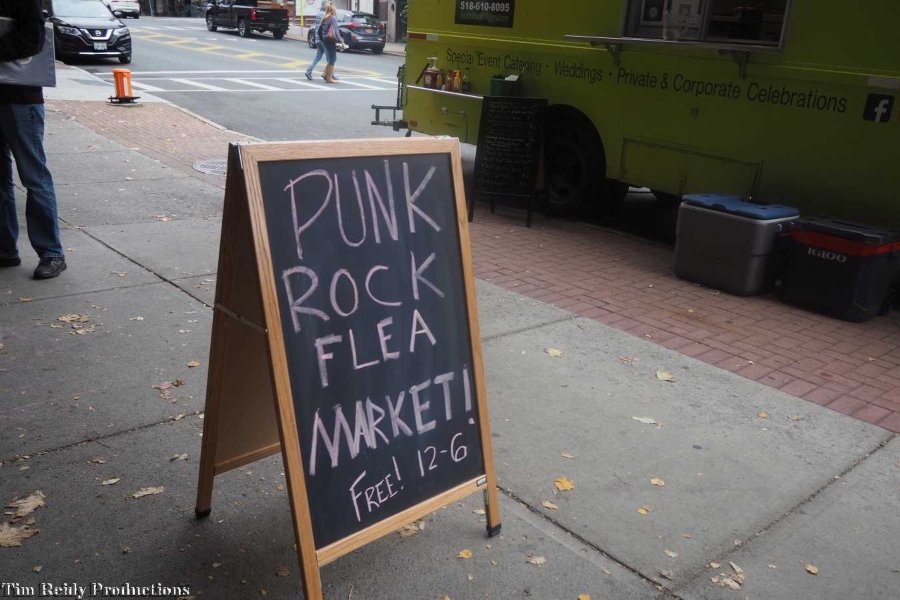 518-610-8095
Special Event Catering · Weddings · Private & Corporate Celebrations
f
IGLOO
PUNK
ROCK
FLEA
MARKET!
FREE! 12-6
Tim Reidy Productions